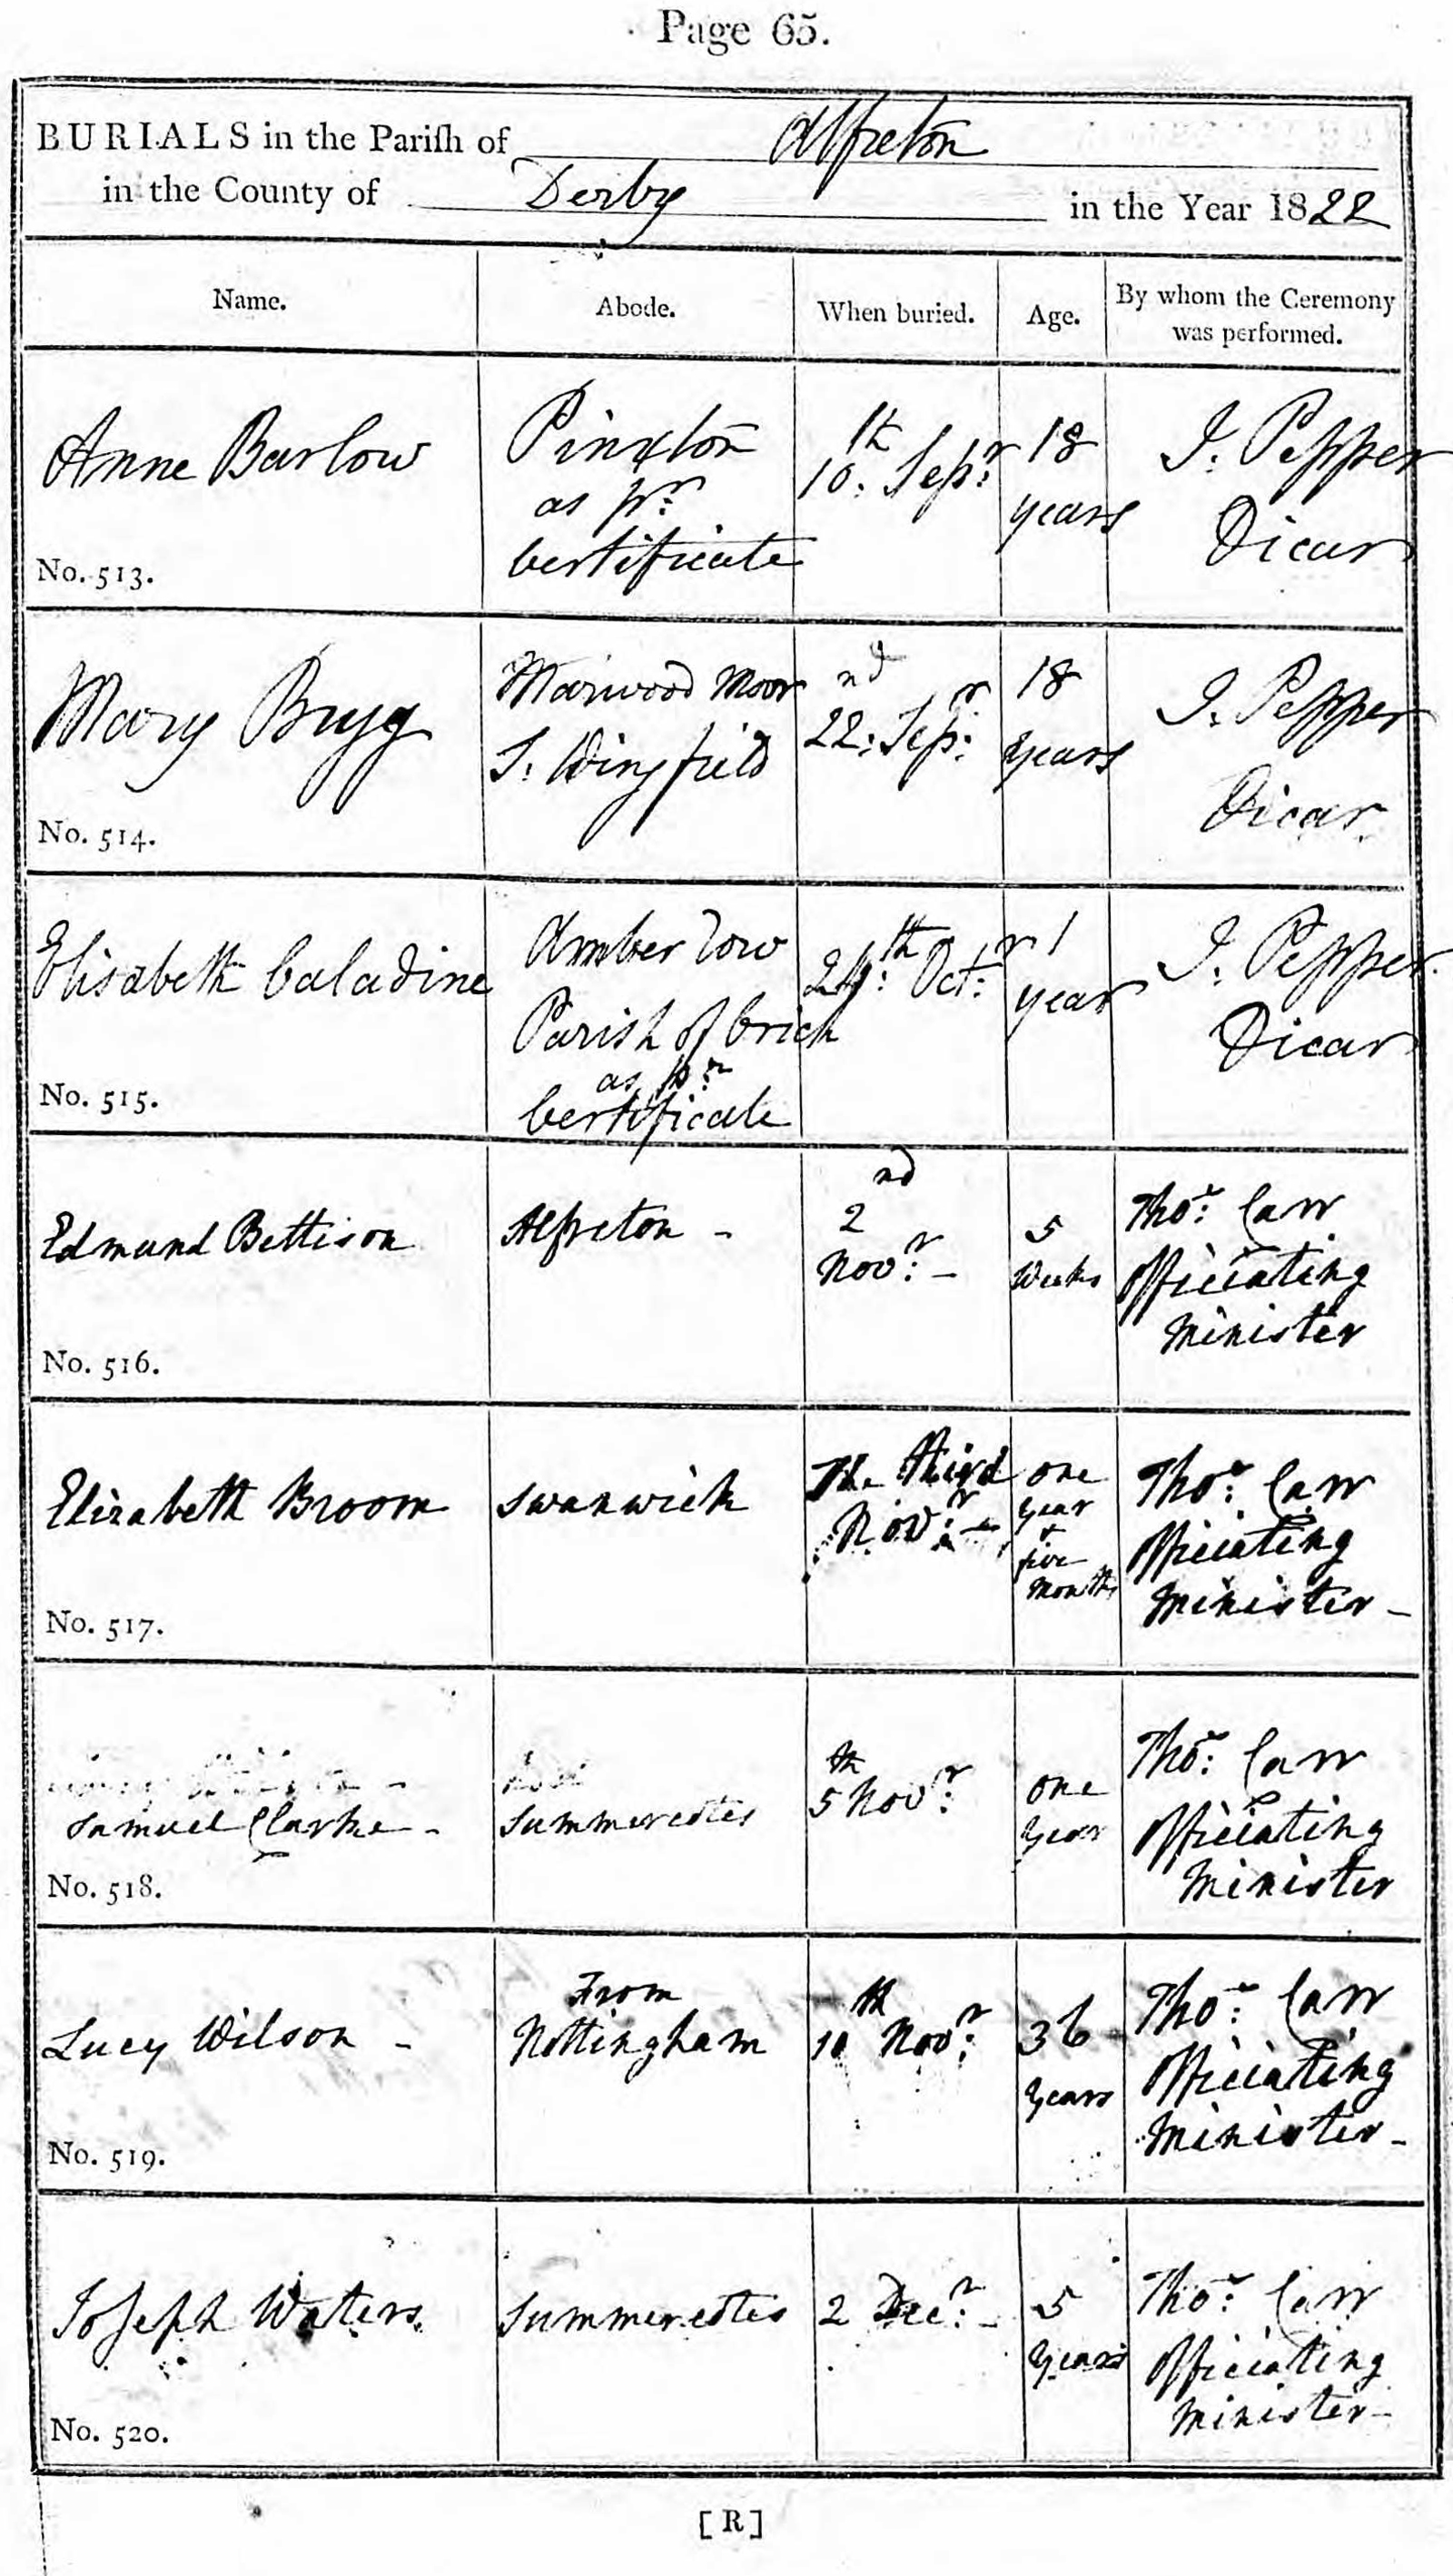 Page 65.
BURIALS in the Pariſh of Alfreton
in the County of Derby in the Year 1822
Name.
Abode.
When buried.
Age.
By whom the Ceremony
was performed.
Anne Barlow
No. 513.
Pinxton
as pr:
Certificate
th
10: Sepr:
18
years
J: Pepper
Vicar
Mary Brygg
No. 514.
Moor
S: Wingfield
nd
22: Sepr:
18
years
J: Pepper
Vicar
Elisabeth Caladine
No. 515.
Amber Row
Parish of Crich
as pr:
Certificate
th
24: Octr:
1
year
J: Pepper.
Vicar
Edmund Bettison
No. 516.
Alfreton -
nd
2
Novr: -
5
Weeks
Thos: Carr
Officiating
Minister
Elizabeth Broom
No. 517.
Swanwick
The third
Novr: -
one
year
&
five
Months
Thos: Carr
Officiating
Minister -
Samuel Clarke -
No. 518.
Summercotes
th
5 Novr:
one
Year
Thos: Carr
Officiating
Minister
Lucy Wilson -
No. 519.
From
Nottingham
th
10 Novr:
36
Years
Thos: Carr
Officiating
Minister -
Joseph Waters.
No. 520.
Summercotes
2 Decr: -
5
Years
Thos: Carr
Officiating
Minister -
[ R ]